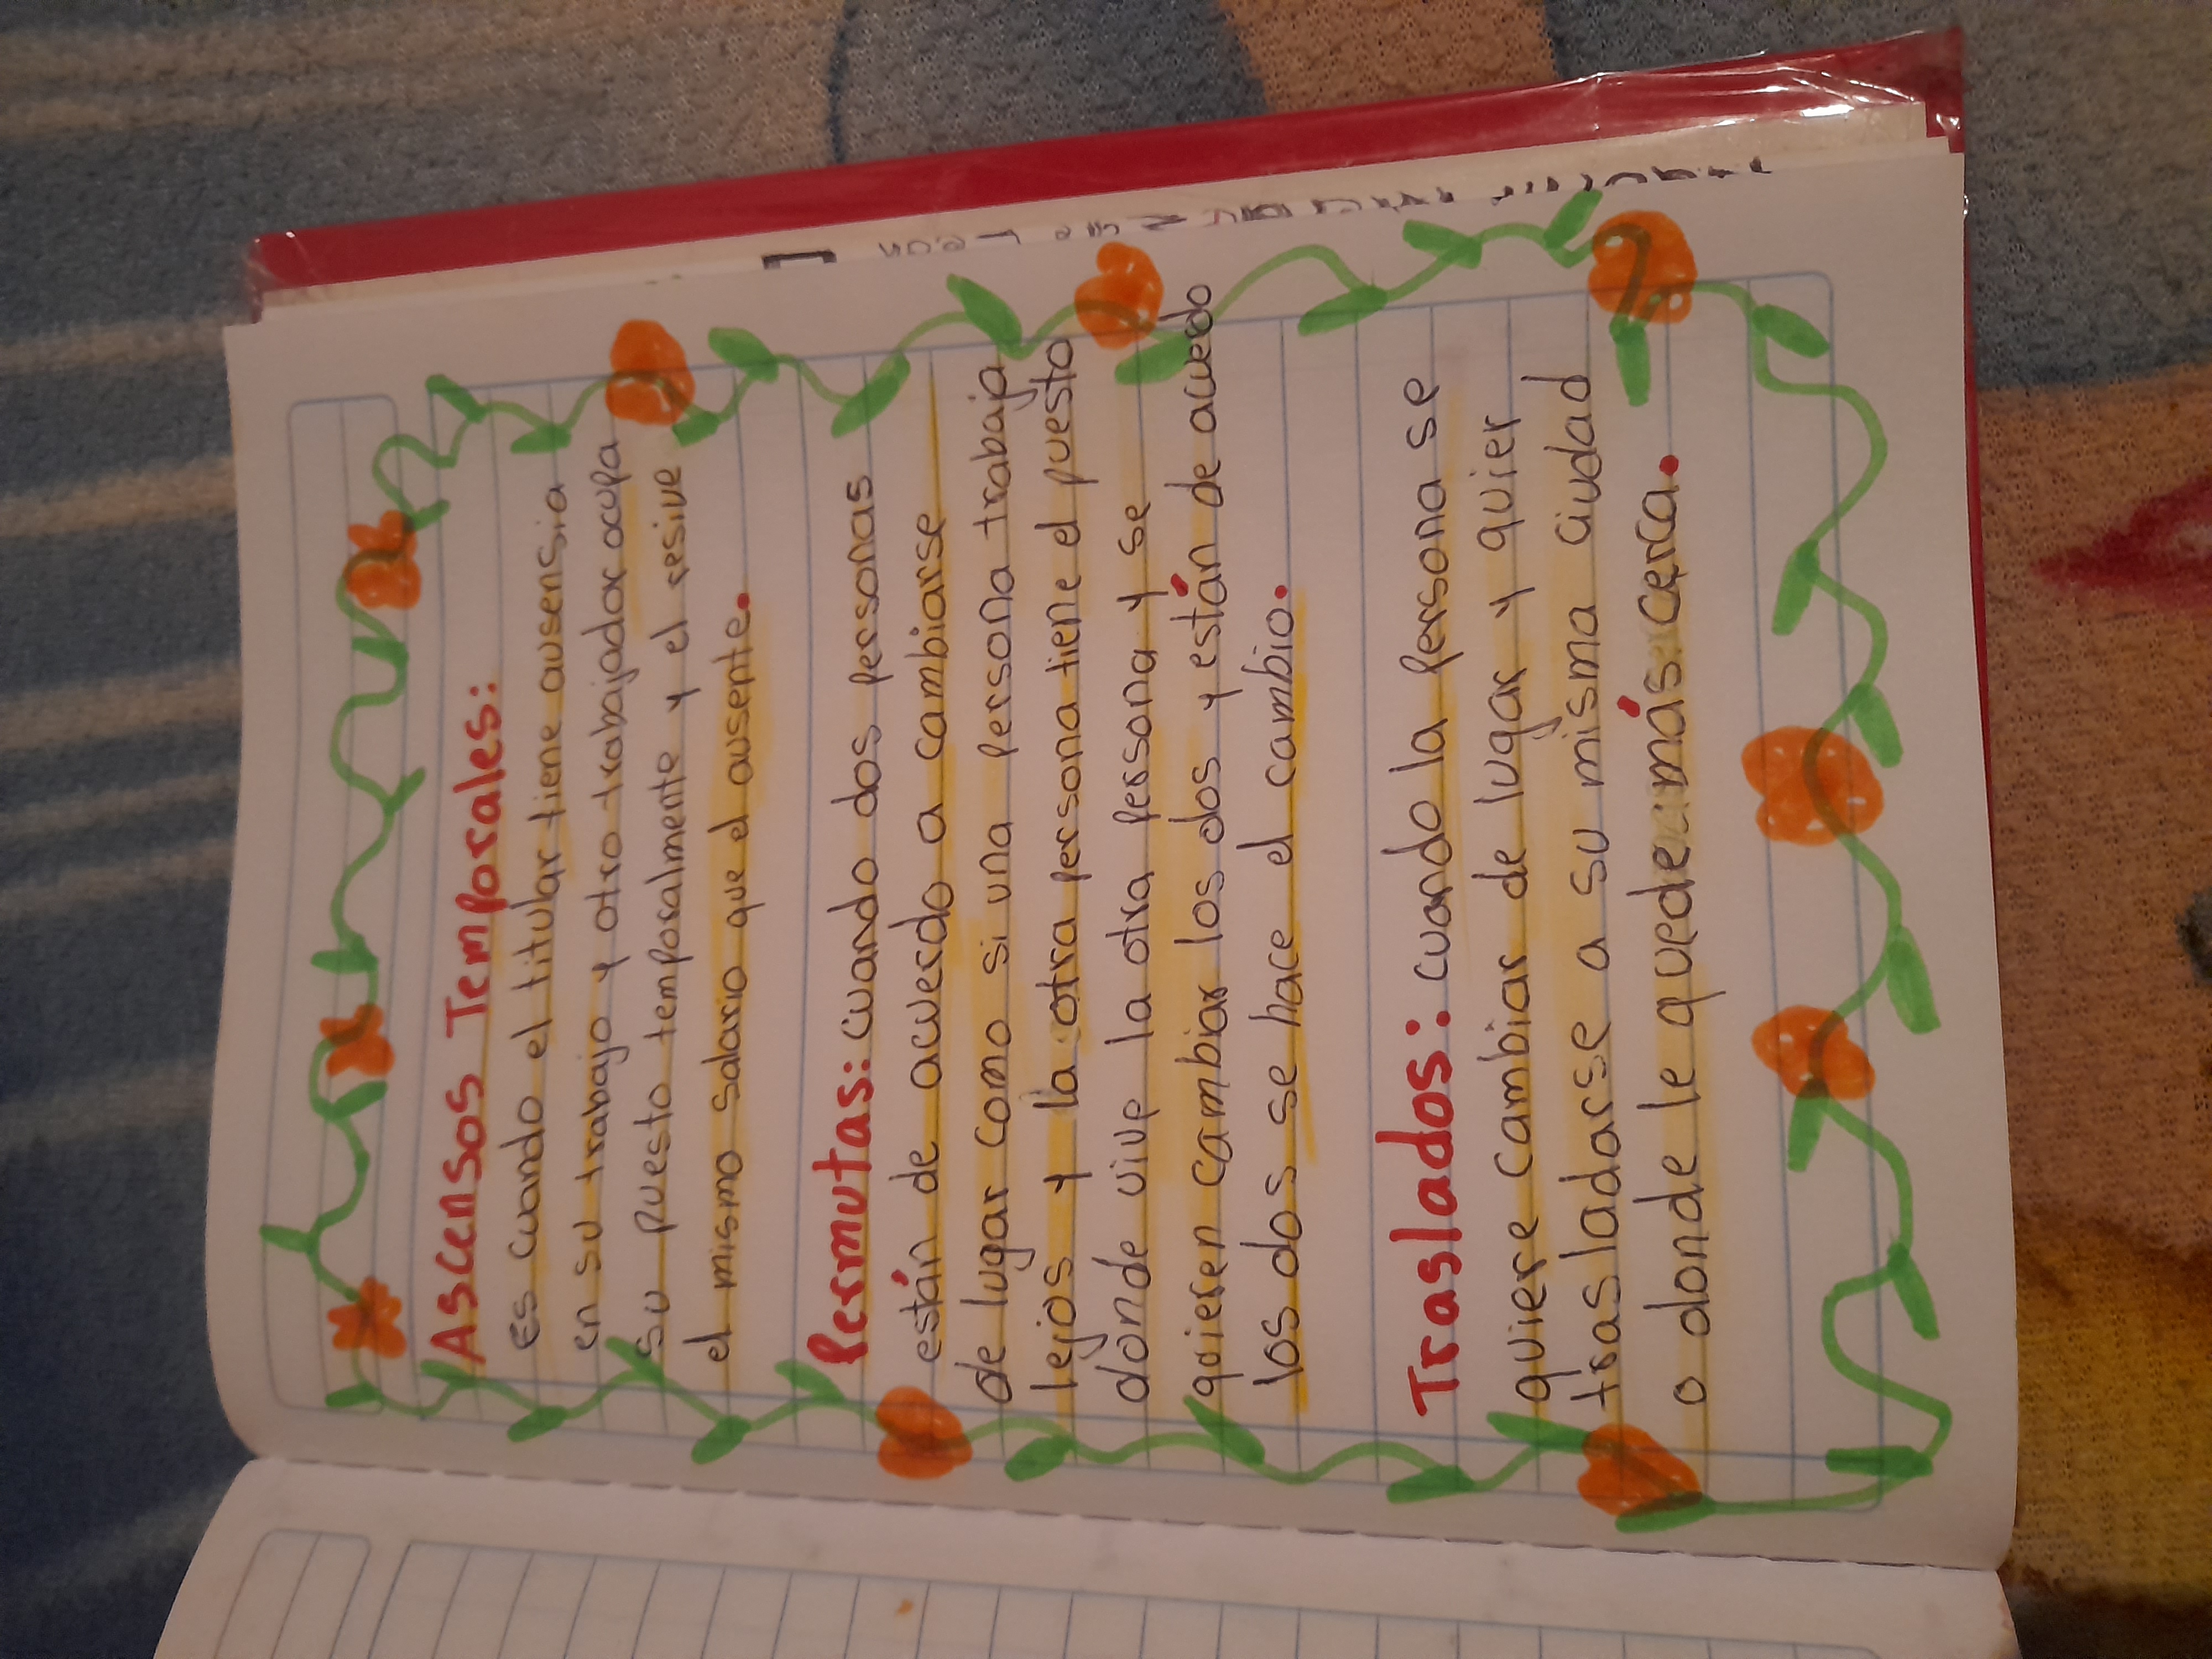 Ascensos Temporales:
Es cuando el titular tiene ausensia
en su trabajo y otro trabajador ocupa
su puesto temporalmente y el resive
el mismo salario que el ausente.
Permutas: cuando dos personas
están de acuerdo a cambiarse
de lugar como si una persona trabaja
lejos y la otra persona tiene el puesto
donde vive la otra persona y se
quieren cambiar los dos y están de acuerdo
los dos se hace el cambio.
Traslados: cuando la persona se
quiere cambiar de lugar y quier
trasladarse a su misma ciudad
o donde le quede más cerca.